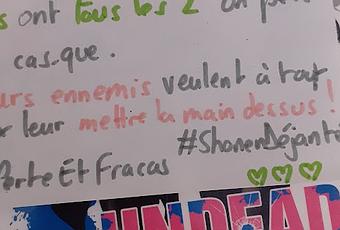 ont tous les 2 un
cas-que.
urs ennemis veulent à tout
leur mettre la main dessus !
#ShonenDéjanté
Perte Et Fracas
UNDEAD